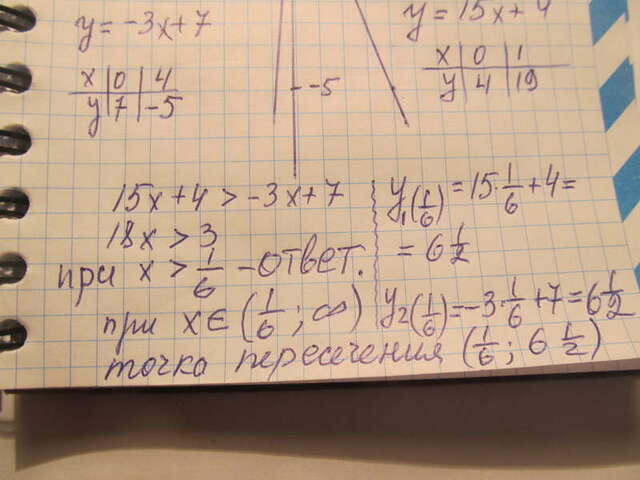 y = -3x+7
y = 15x+4
x | 0 | 4
y | 7 | -5
-5
x | 0 | 1
y | 4 | 19
15x+4 > -3x+7
18x > 3
при x > 1/6 - ответ.
при x ∈ (1/6 ; ∞)
y₁(1/6) = 15·1/6 + 4 =
= 6 1/2
y₂(1/6) = -3·1/6 + 7 = 6 1/2
точка пересечения (1/6 ; 6 1/2)